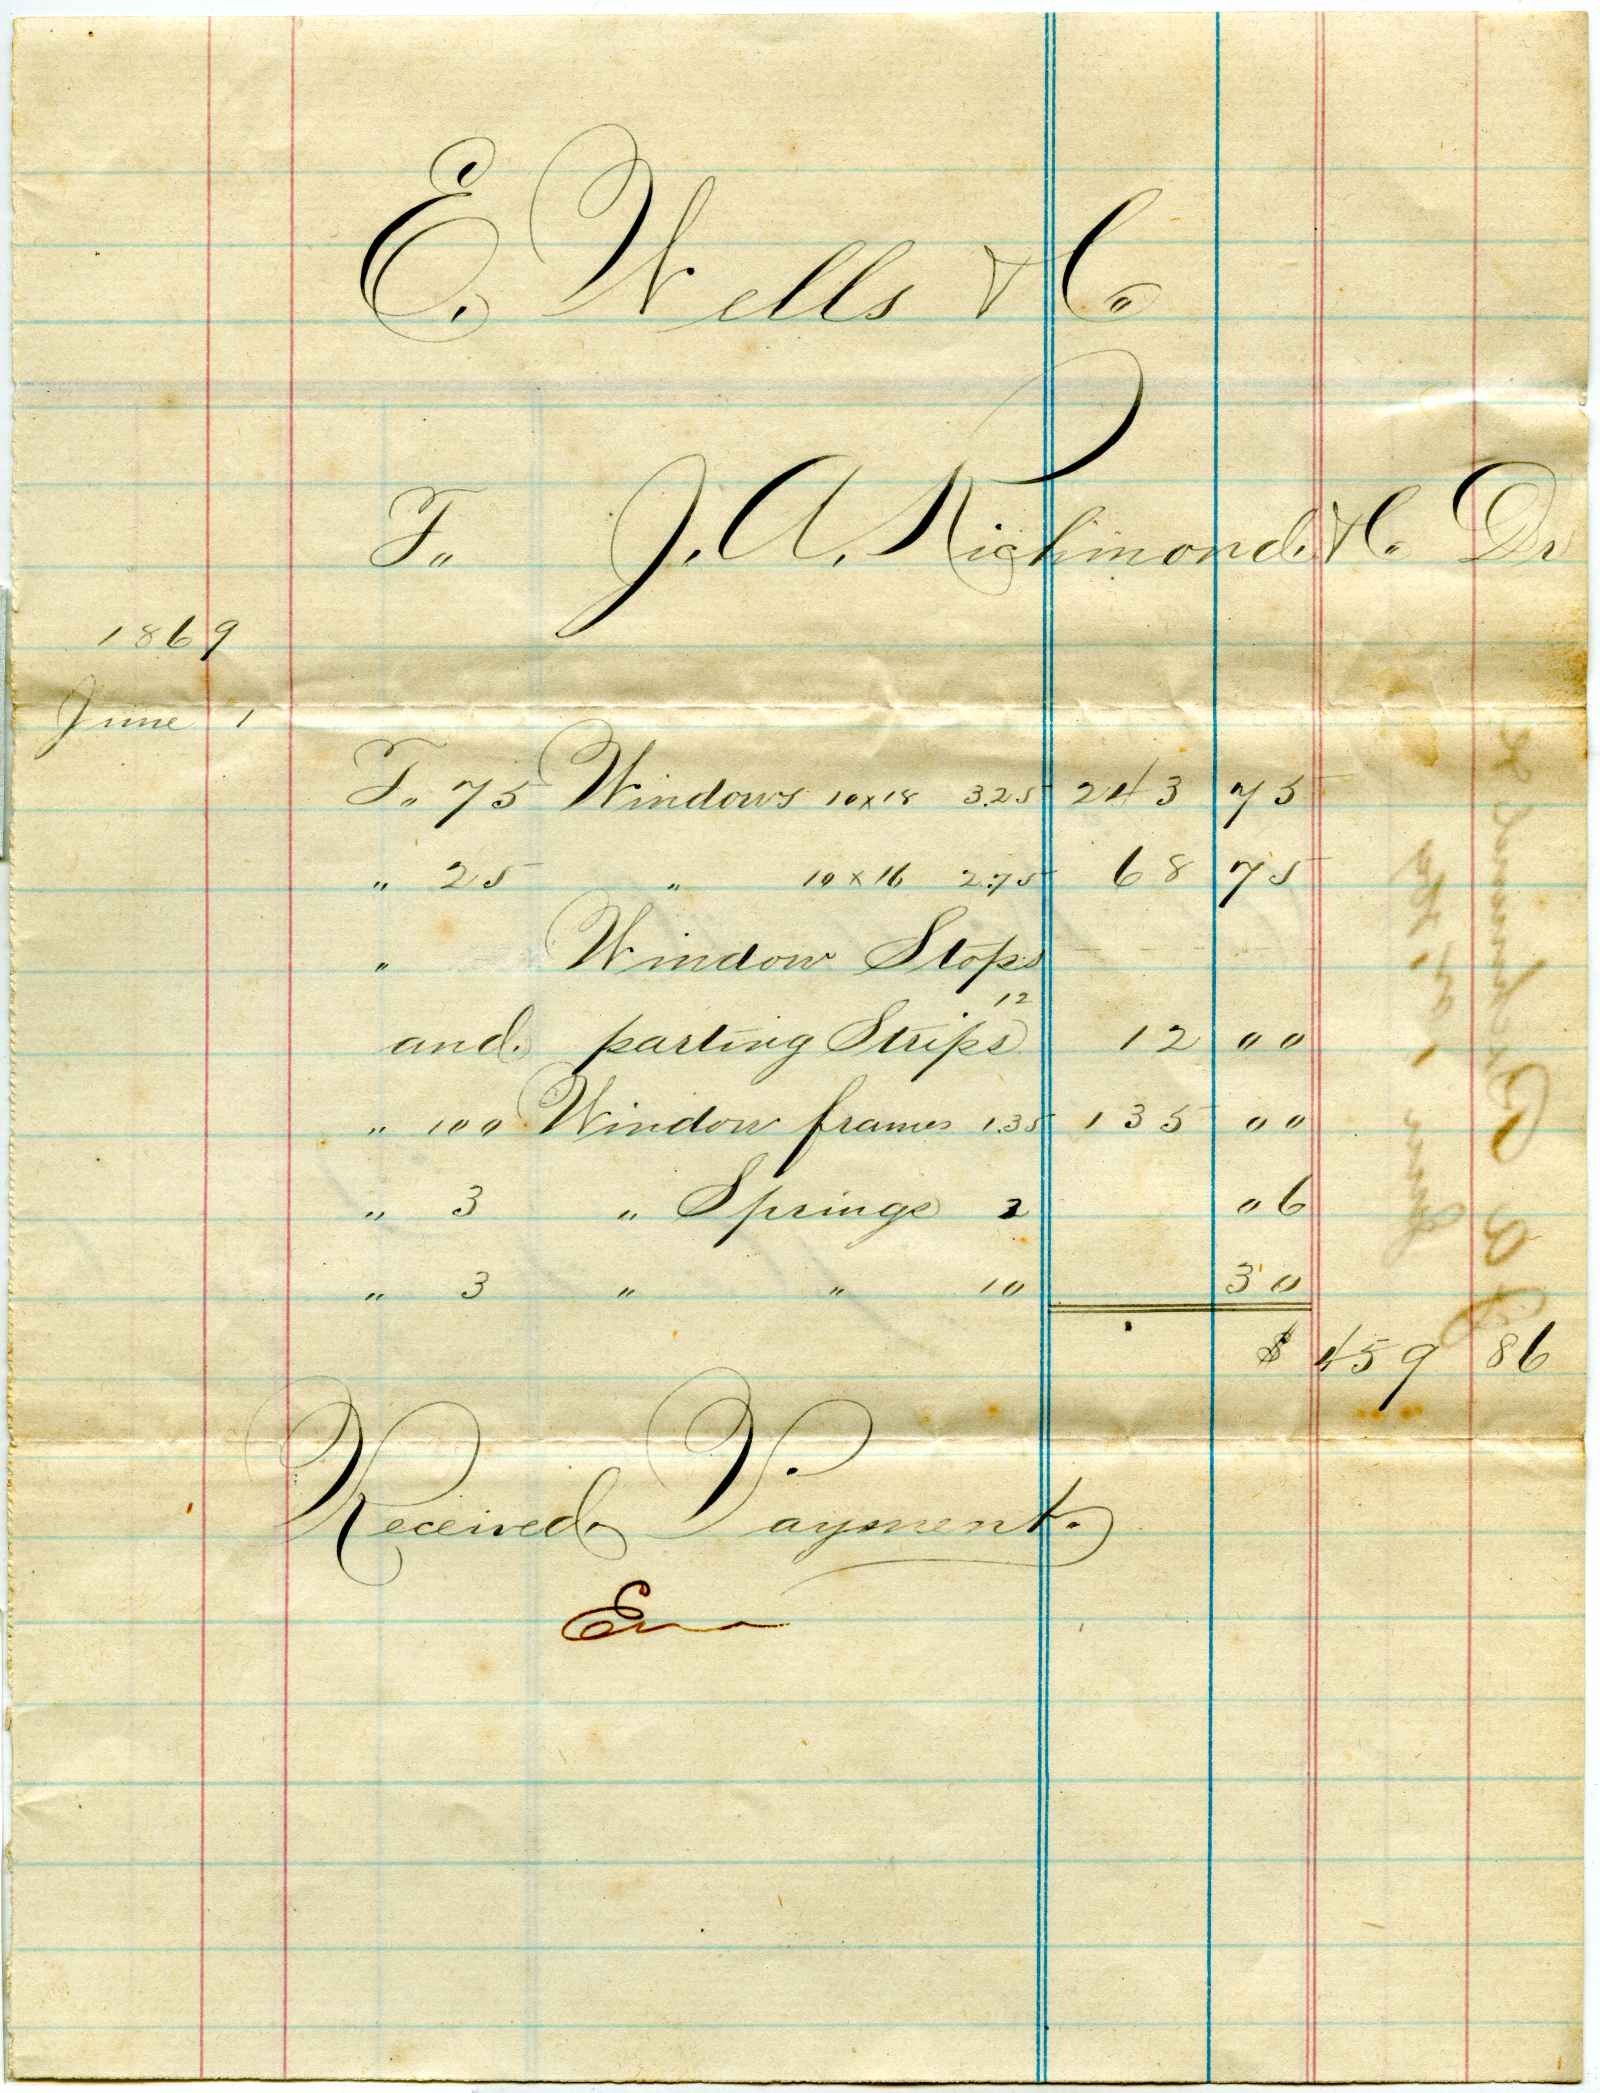 E. Wells & Co.
To J. A. Richmond & Co. Dr
1869
June 1
To 75 Windows 10x18 3.25 243 75
" 25 " 10x16 2.75 68 75
" Window Stops
and parting Strips 12 12 00
" 100 Window frames 1.35 135 00
" 3 " Springs 2 06
" 3 " " 10 30
$ 459 86
Received Payment.